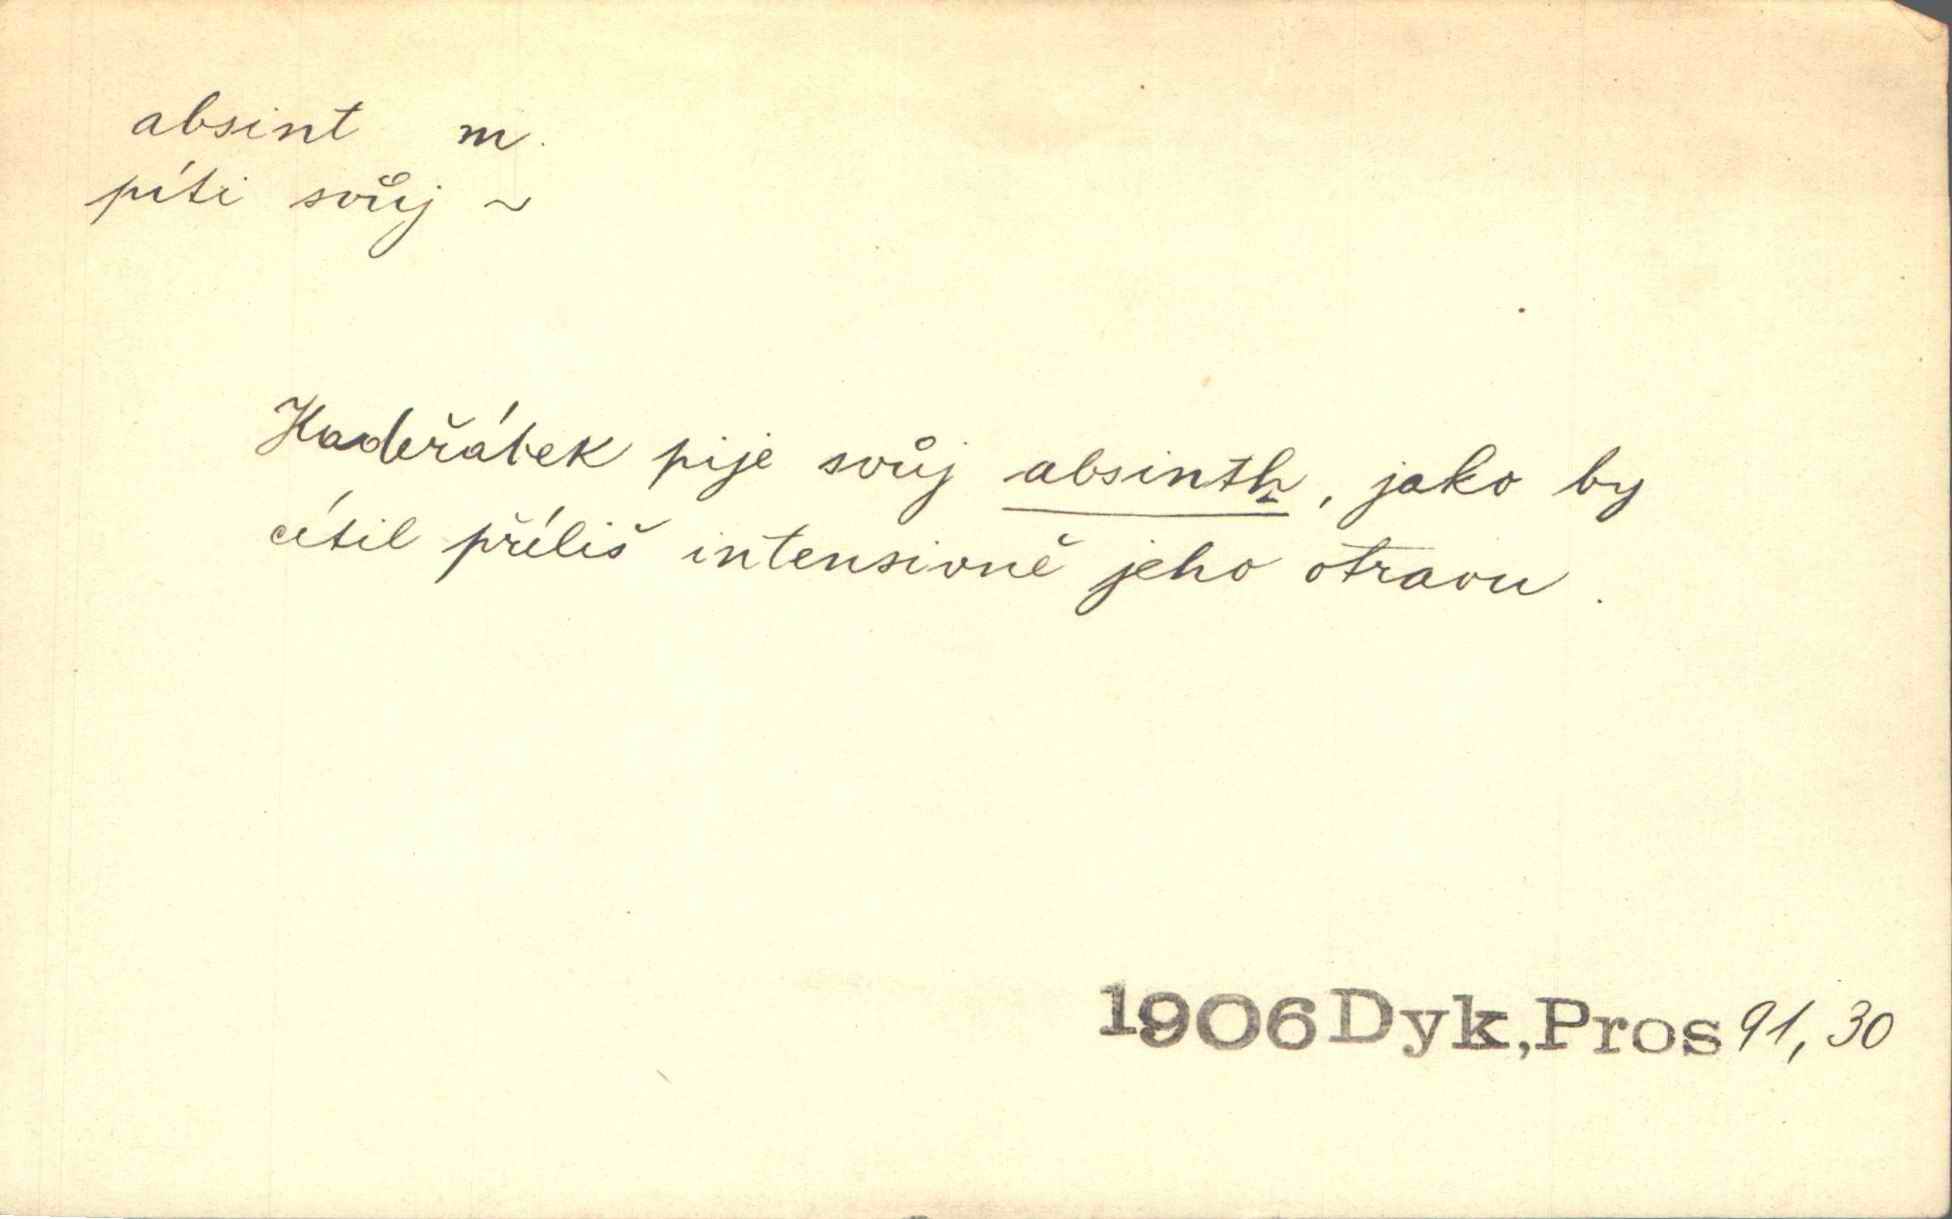 absint m.
píti svůj ~
Kadeřábek pije svůj absinth, jako by
cítil příliš intensivně jeho otravu.
1906 Dyk, Pros 91, 30